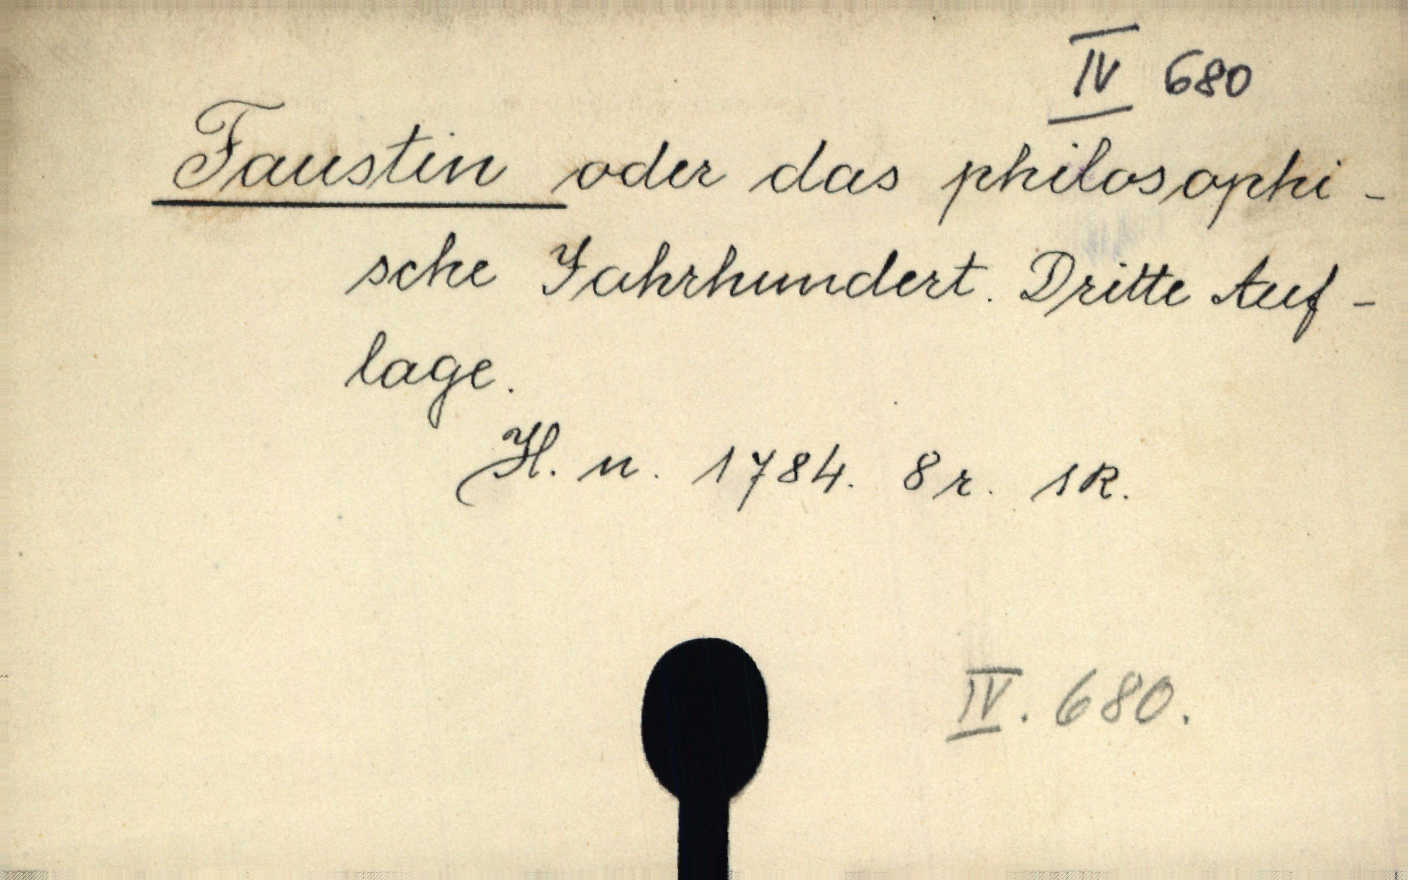 IV 680
Faustin oder das philosophi-
sche Jahrhundert. Dritte Auf-
lage.
H. n. 1784. 8r. 1R.
IV. 680.